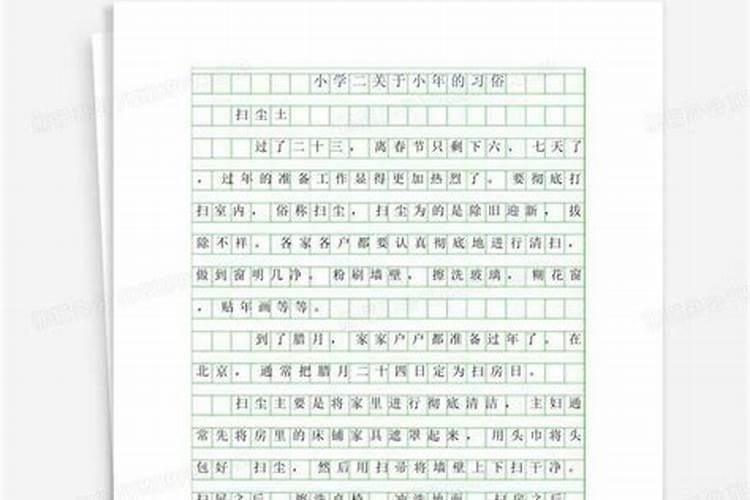 小学二关于小年的习俗
扫尘土
过了二十三，离春节只剩下六、七天了
，过年的准备工作显得更加热烈了。要彻底打
扫室内，俗称扫尘，扫尘为的是除旧迎新，拔
除不祥。各家各户都要认真彻底地进行清扫，
做到窗明几净。粉刷墙壁，擦洗玻璃，糊花窗
，贴年画等等。
到了腊月，家家户户都准备过年了。在
北京，通常把腊月二十四日定为扫房日。
扫尘主要是将家里进行彻底清洁，主妇通
常先将房里的床铺家具遮罩起来，用头巾将头
包好 扫尘，然后用扫帚将墙壁上下扫干净。
扫尘之后，擦洗桌椅，冲洗地面。扫房之后，